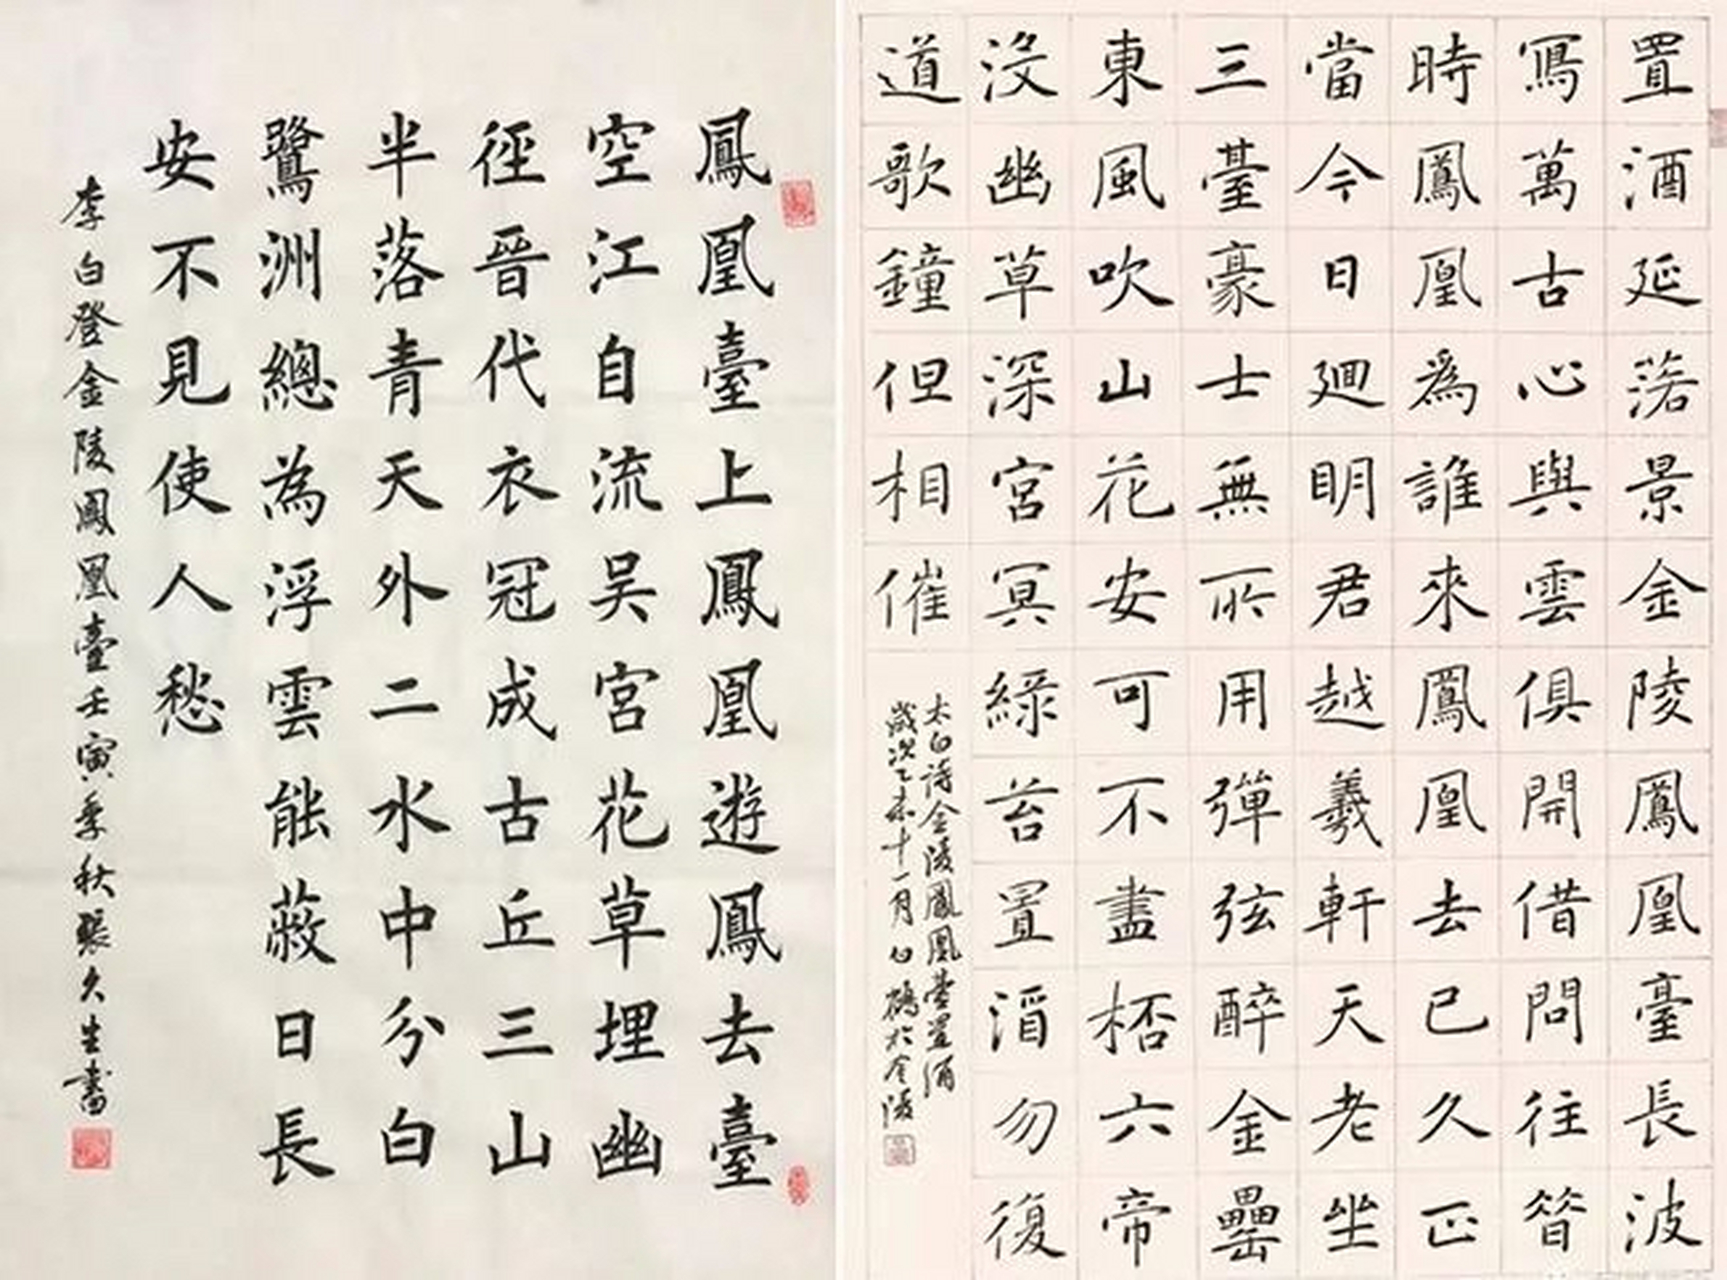 鳳凰臺上鳳凰遊鳳去臺
空江自流吴宮花草埋幽
徑晉代衣冠成古丘三山
半落青天外二水中分白
鷺洲總為浮雲能蔽日長
安不見使人愁
李白登金陵鳳凰臺壬寅季秋張久生書
置酒延落景金陵鳳凰臺長波
寫萬古心與雲俱開借問往昔
時鳳凰為誰來鳳凰去已久正
當今日廻明君越羲軒天老坐
三臺豪士無所用彈弦醉金罍
東風吹山花安可不盡桮六帝
沒幽草深宮冥綠苔置酒勿復
道歌鐘但相催
太白詩金陵鳳凰臺置酒
歲次乙未十一月白鶴於金陵